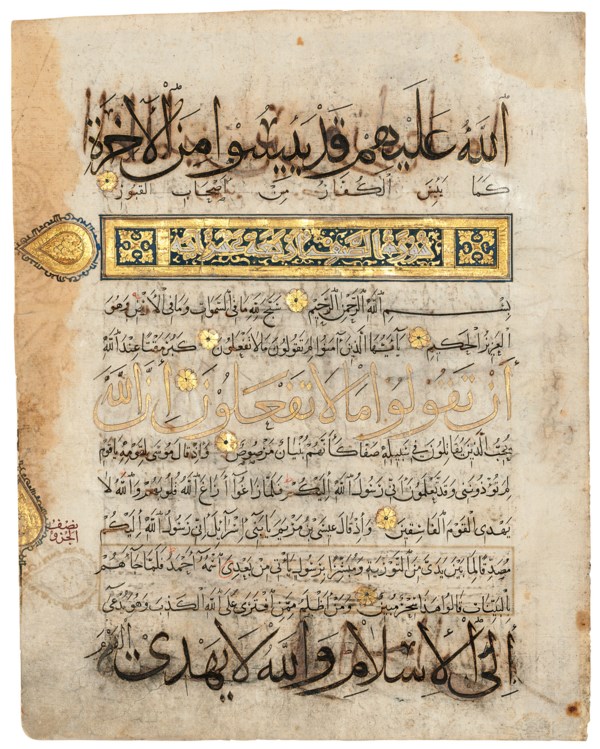 الله عليهم قد يئسوا من الآخرة
كما يئس الكفار من أصحاب القبور
سورة الصف أربع عشرة آية
بسم الله الرحمن الرحيم سبح لله ما في السموات وما في الأرض وهو
العزيز الحكيم يا أيها الذين آمنوا لم تقولون ما لا تفعلون كبر مقتا عند الله
أن تقولوا ما لا تفعلون إن الله
يحب الذين يقاتلون في سبيله صفا كأنهم بنيان مرصوص وإذ قال موسى لقومه يا قوم
لم تؤذونني وقد تعلمون أني رسول الله إليكم فلما زاغوا أزاغ الله قلوبهم والله لا
يهدي القوم الفاسقين وإذ قال عيسى بن مريم يا بني إسرائيل إني رسول الله إليكم
نصف
الجزو
مصدقا لما بين يدي من التورية ومبشرا برسول يأتي من بعدي اسمه أحمد فلما جاءهم
بالبينات قالوا هذا سحر مبين ومن أظلم ممن افترى على الله الكذب وهو يدعى
إلى الإسلام والله لا يهدي القوم